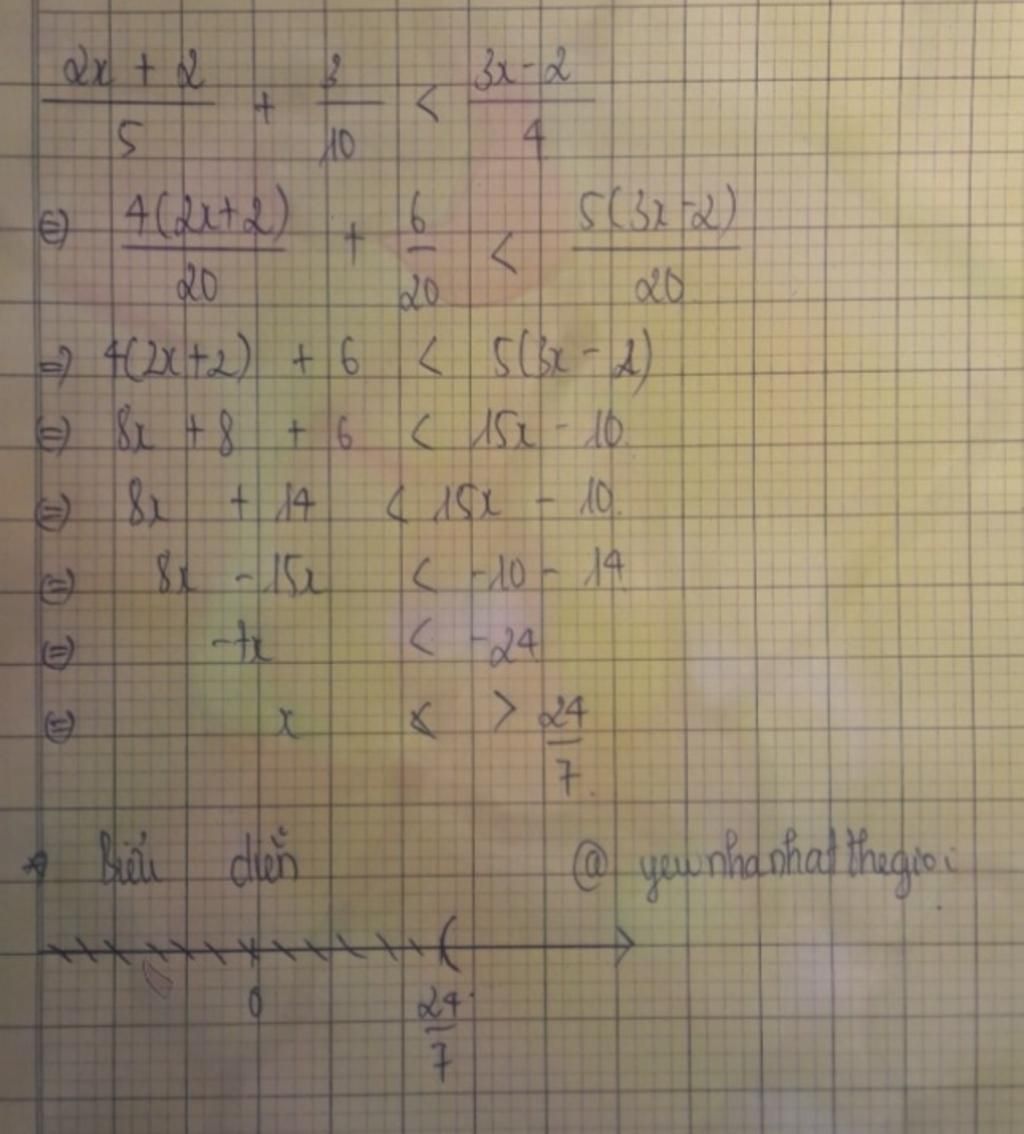 (2x + 2)/5 + 3/10 < (3x - 2)/4
⇔ 4(2x+2)/20 + 6/20 < 5(3x-2)/20
⇒ 4(2x+2) + 6 < 5(3x - 2)
⇔ 8x + 8 + 6 < 15x - 10
⇔ 8x + 14 < 15x - 10
⇔ 8x - 15x < -10 - 14
⇔ -7x < -24
⇔ x > 24/7
* Biểu diễn @ yewnhanhatthegioi
0 24/7